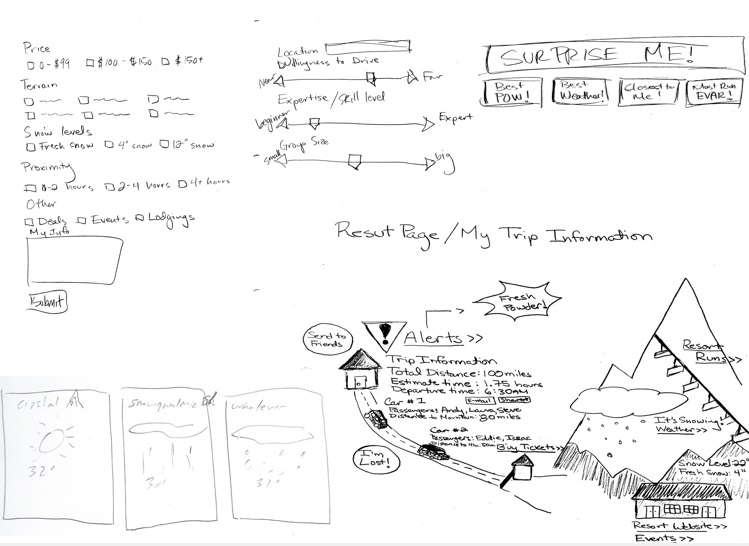 Price
0-$99 $100-$150 $150+
Terrain
Snow levels
Fresh snow 4" snow 12" snow
Proximity
0-2 hours 2-4 hours 4+ hours
Other
Deals Events Lodgings
My Info
Submit
Location
Willigness to Drive
Near Farr
Expertise/skill level
beginner Expert
Group Size
Small big
SURPRISE ME!
Best POW!
Best Weather!
Closed to Me!
Most Run EVAR!
Resut Page/My Trip Information
Send to Friends
Alerts>>
Fresh Powder!
Trip Information
Total Distance: 100 miles
Estimate time: 1.75 hours
Departure time: 6:30AM
Car #1 Email Share
Passengers: Andy, Laura, Steve
Distance to Mountain: 80 miles
Car #2
Passengers: Eddie, Isaac
Distance to the
Buy Tickets>>
I'm Lost!
Resort Runs>>
It's Snowing!
Weather>>
Snow Level: 22"
Fresh Snow: 4"
Resort Website>>
Events>>
Crystal
32°
Snoqualmie
whatever
31°